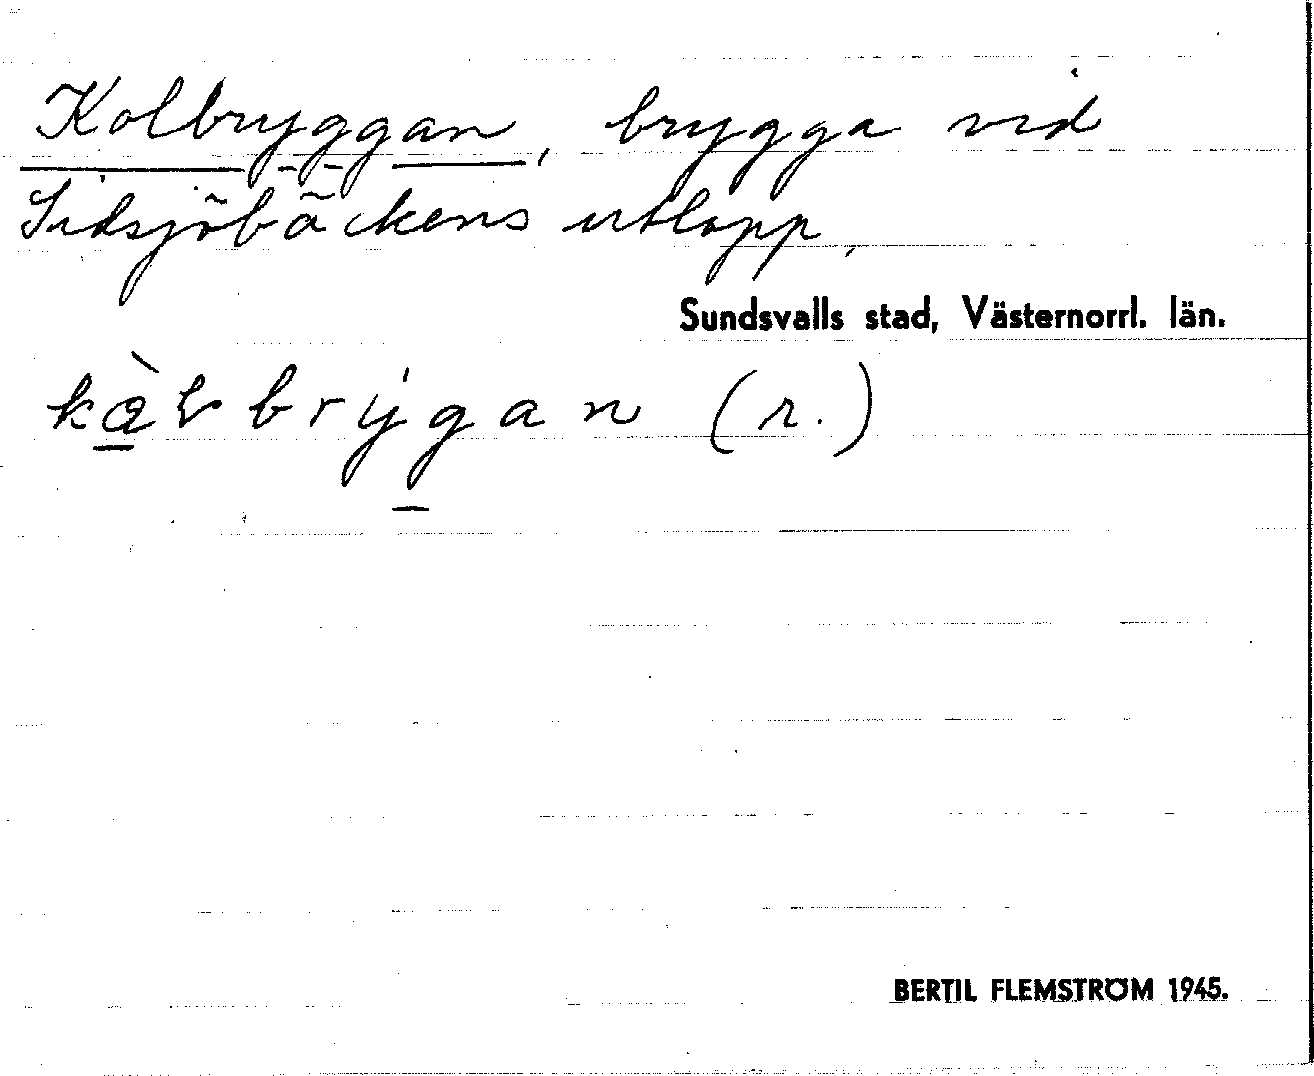 Kolbryggan, brygga vid
Sidsjöbäckens utlopp.
Sundsvalls stad, Västernorrl. län.
(r.)
BERTIL FLEMSTRÖM 1945.